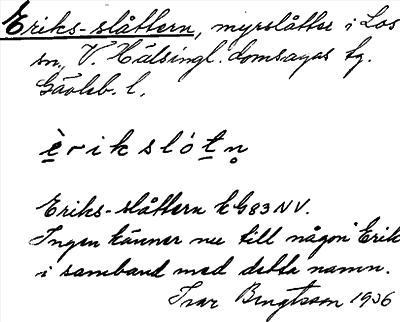 Eriks-slåttern, myrslåtter i Los
sn, V. Hälsingl. domsagas tg.
Gävleb. l.
èrikslótn̥
Eriks-slåttern k G83NV.
Ingen känner nu till någon Erik
i samband med detta namn.
Ivar Bengtsson 1936